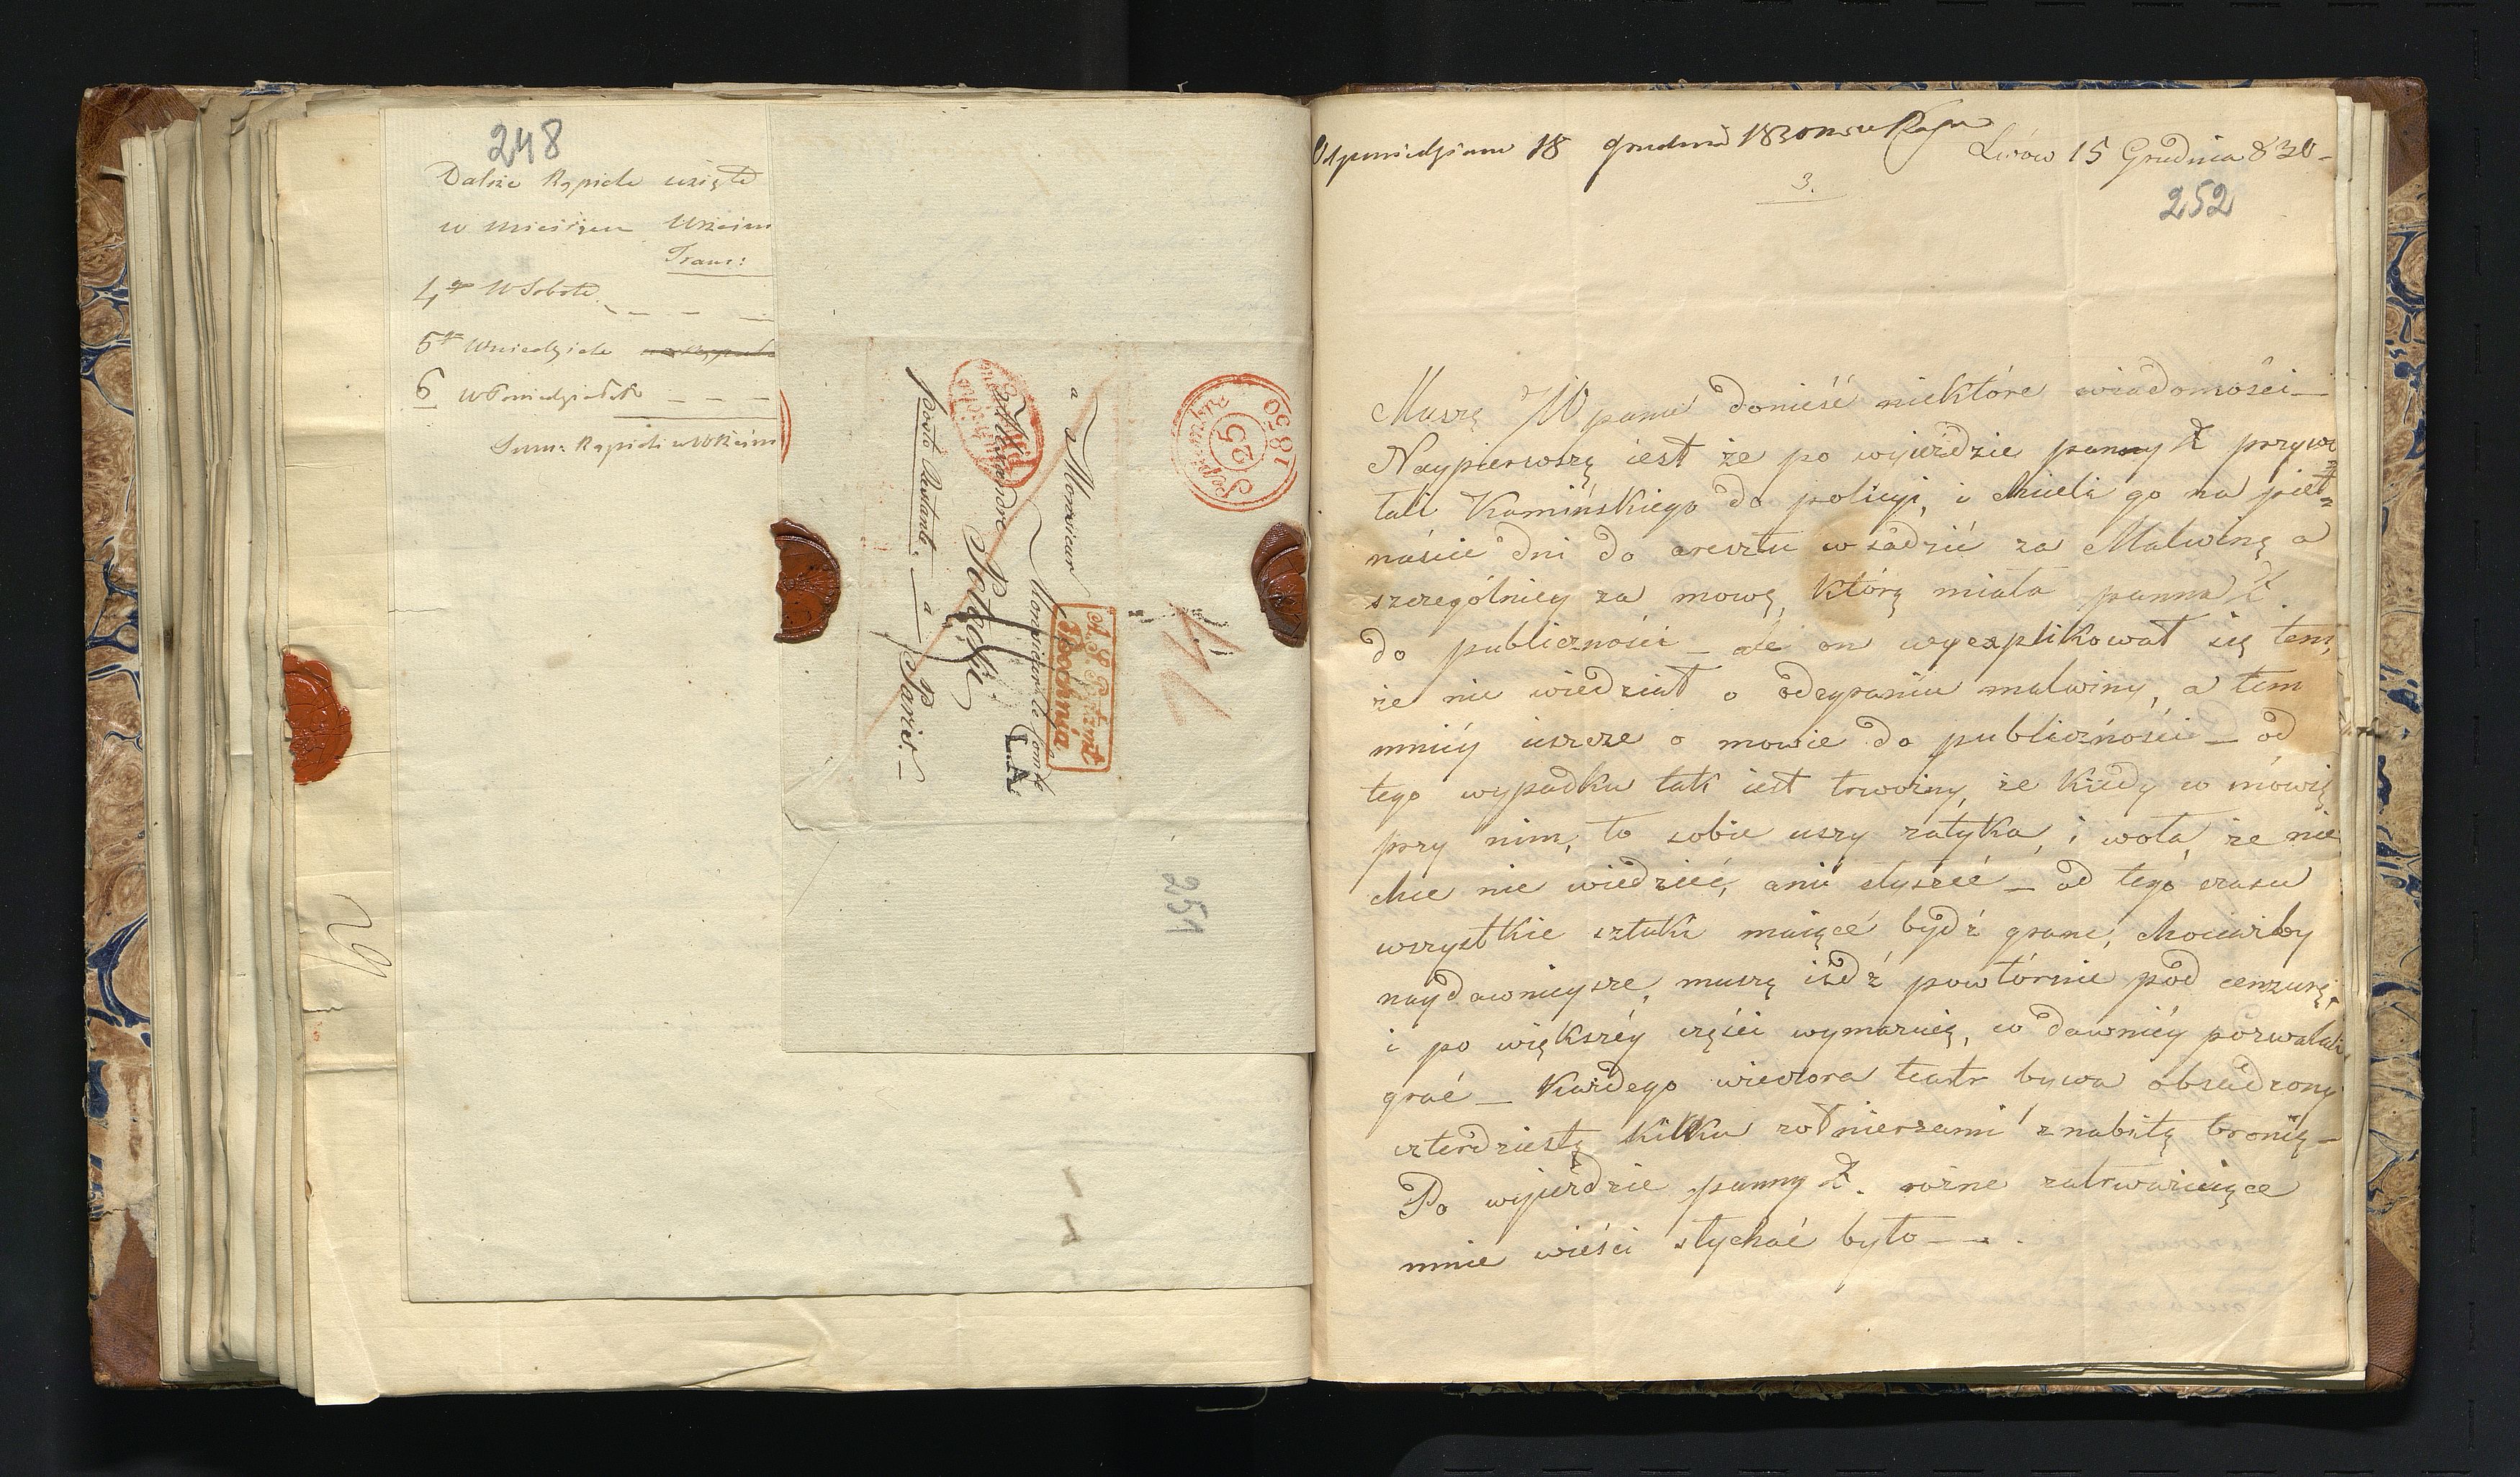 248
Dalsze Kąpiele wzięte
w miesiącu Wrześn
Franc:
4ta W Sobotę
5ta W niedzielę
6 w Poniedziałek
Sum: Kąpieli w Wrześn
a Monsieur
Monsieur le Comte
Alexandre Potocki
a Paris
poste restante.
Septembre
25
1830
A. E. P. Etrmt
Bochnia
L.A.
251
Odpowiedziane 18 grudnia 1830
3.
Lwów 15 Grudnia 830
252
Muszę W panu donieść niektóre wiadomości
Naypierwszą iest że po wyieździe panny Ż przywo
łali Kamińskiego do policyi, i chcieli go na pięt=
naście dni do aresztu wsadzić za Malwinę a
szczególniey za mowę, którą miała panna Ż.
do publiczności _ ale on wyexplikował się tem,
że nie wiedział o odegraniu malwiny, a tem
mniéy ieszcze o mowie do publiczności _ od
tego wypadku tak iest trwożny, że kiedy co mówią
przy nim, to sobie uszy zatyka, i woła, że nie
chce nic wiedzieć, ani słyszeć _ od tego czasu
wszystkie sztuki maiące bydź grane, chociażby
naydawnieysze, muszą iśdź powtórnie pod cenzurę,
i po większéy części wymazuią, co dawniéy pozwalali
grać _ Każdego wieczora teatr bywa obsadzony
czterdziestą kilku żołnierzami z nabitą bronią _
Po wyieździe panny Ż. rożne zatrważaiące
mnie wieści słychać było _ .